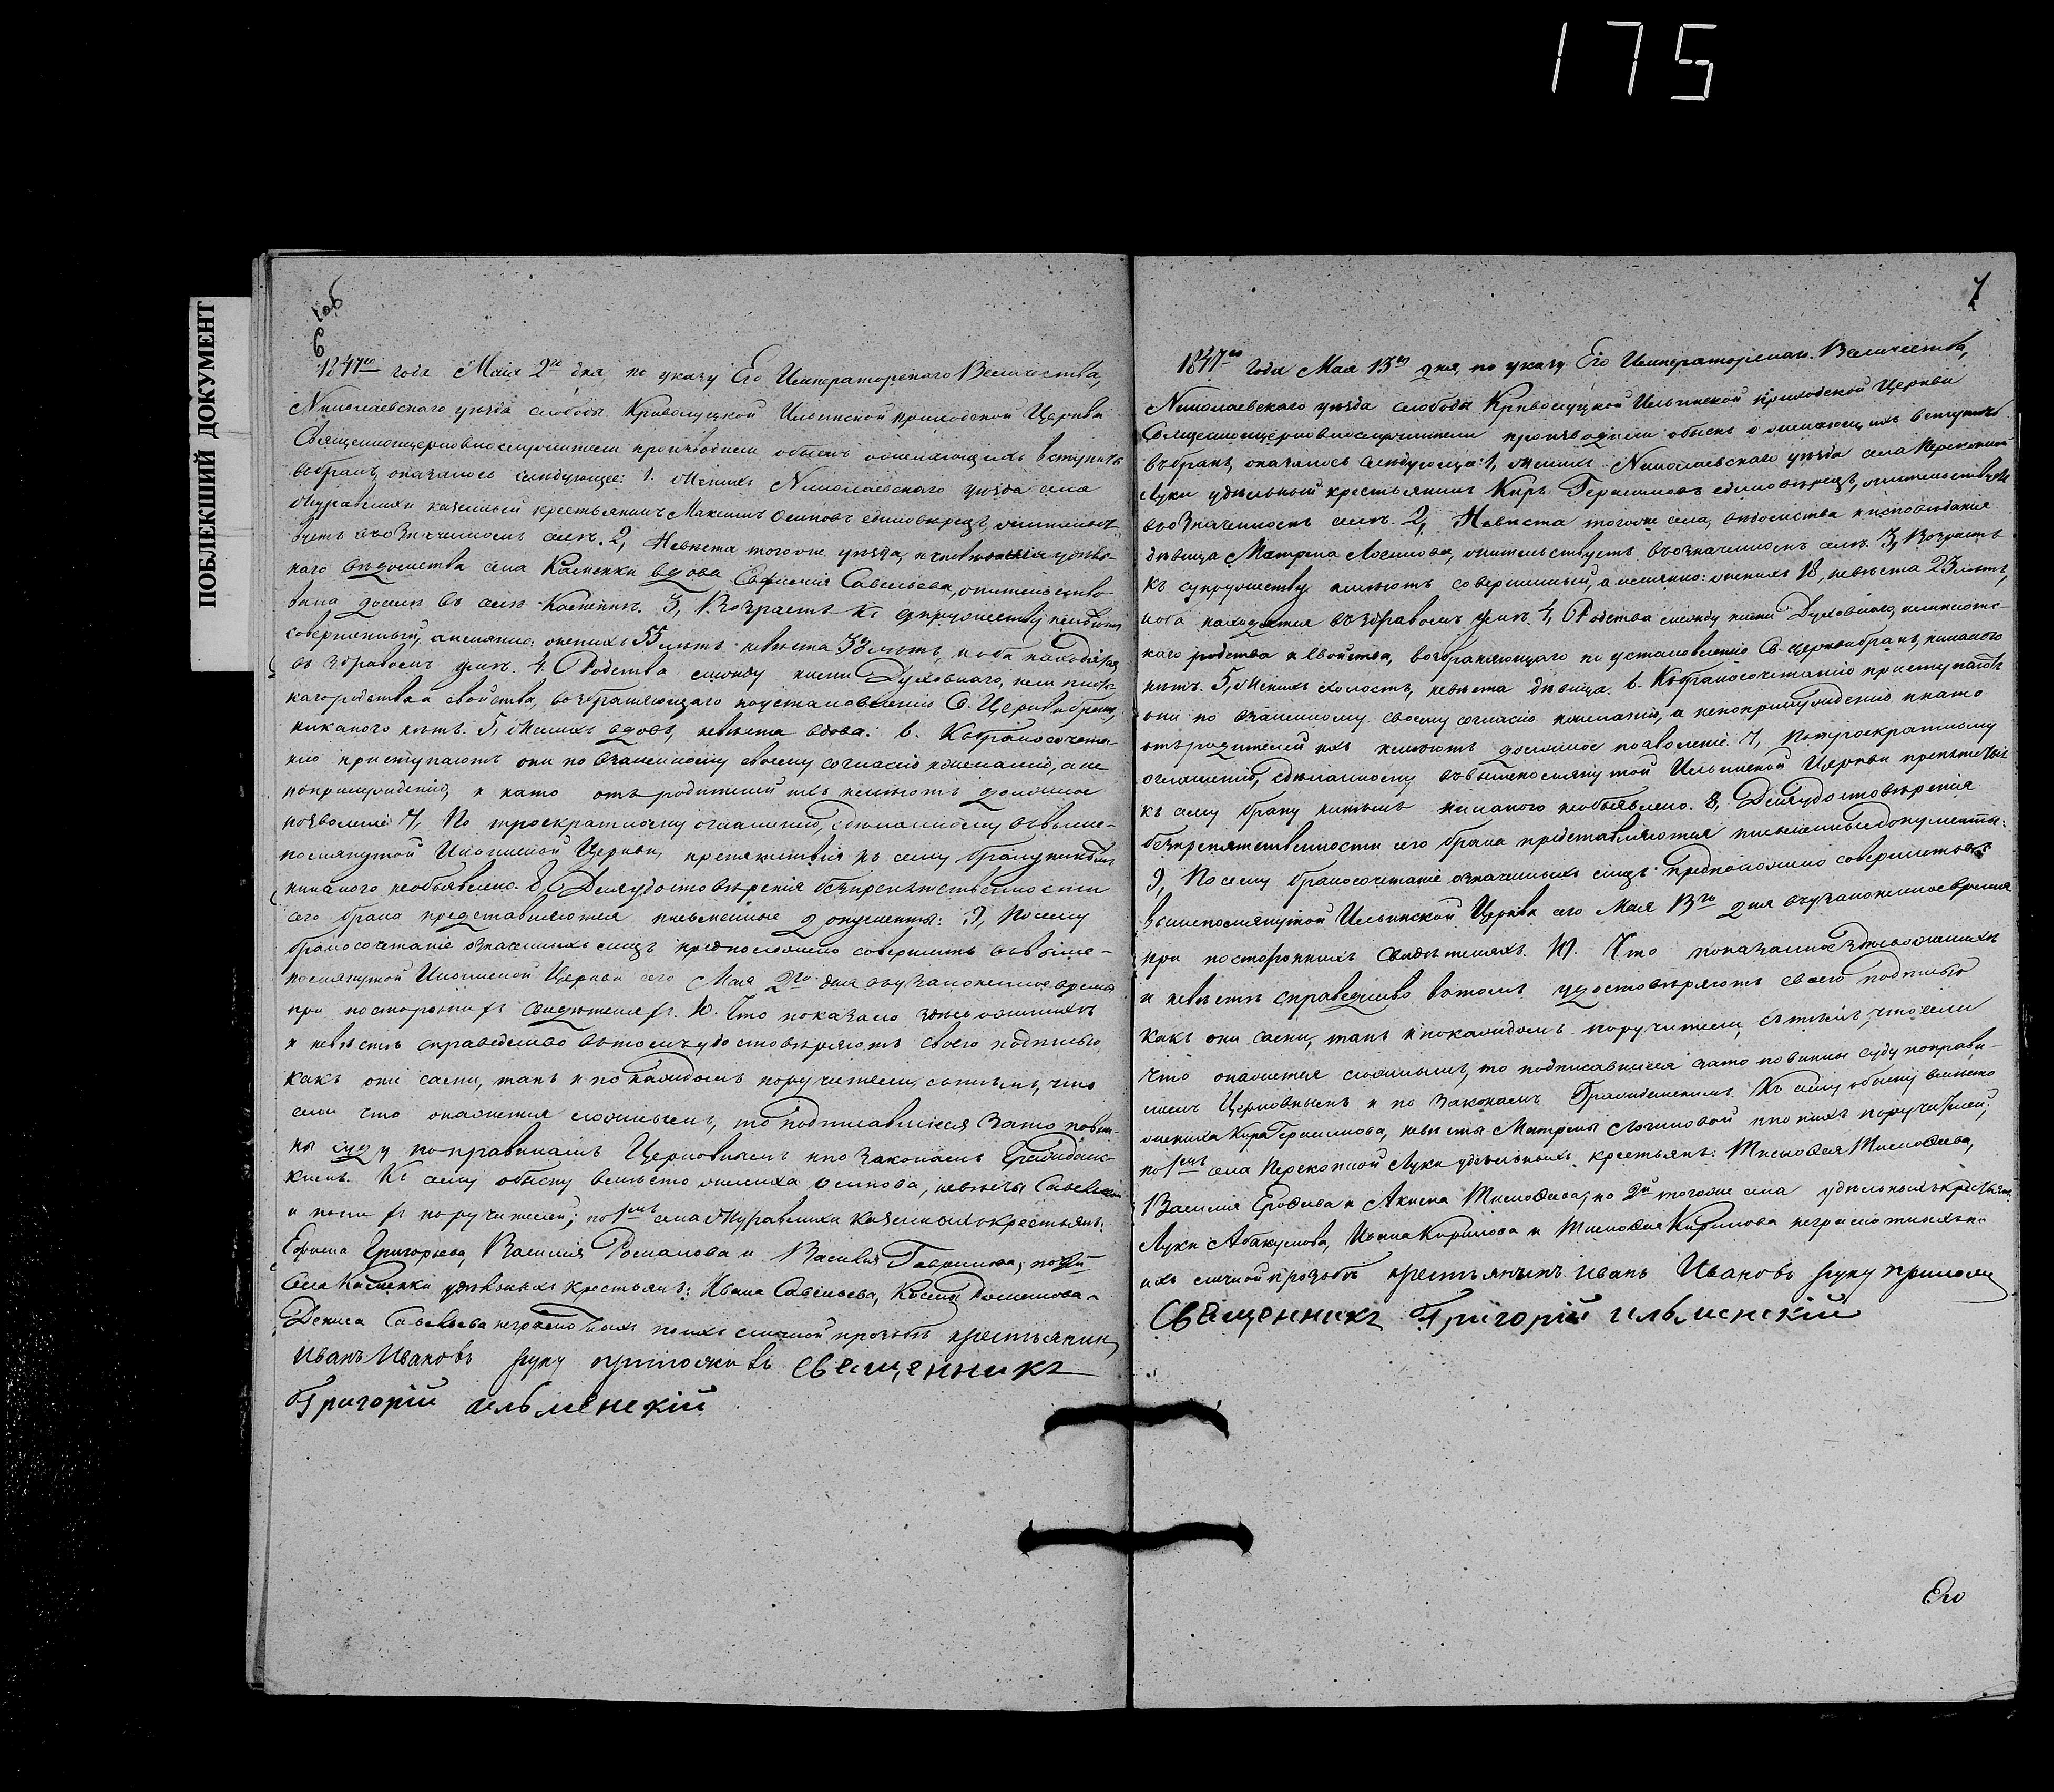 175
ПОБЛЕКШИЙ ДОКУМЕНТ
6 об
1847го года Мая 2го дня, по указу Его Императорскаго Величества,
Николаевскаго уѣзда слободы Криволуцкой Ильинской приходской Церкви
Священноцерковнослужители производили обыскъ о желающихъ вступить
въ бракъ, оказалось слѣдующее: 1. Женихъ Николаевскаго уѣзда села
Журавлихи казенный крестьянинъ Максимъ Осиповъ единовѣрецъ, жительст-
вуетъ въ означенномъ селѣ. 2, Невѣста тогоже уѣзда, удѣль-
наго вѣдомства села Каменки вдова Евфимия Савельева, жительство
имѣла досели въ селѣ Каменкѣ. 3, Возрастъ къ супружеству имѣютъ
совершенный, а именно: женихъ 55 лѣтъ невѣста 38 лѣтъ, и оба находятся
въ здравомъ умѣ. 4. Родства между ними Духовнаго, или плот-
скаго родства и свойства, возбраняющаго по установлению Св. Церкви бракъ,
никакого нѣтъ. 5, Женихъ вдовъ, невѣста вдова. 6. Къ бракосочета-
нию приступаютъ они по взаимному своему согласию и желанию, а не
по принуждению, и на то отъ родителей ихъ имѣютъ должное
позволение. 7, По троекратному оглашению, сдѣланному въ выше-
помянутой Ильинской Церкви, препятствия къ сему браку никѣмъ
никакого не объявлено. 8, Для удостовѣрения безпрепятственности
сего брака представляются письменные документы: 9, По сему
бракосочетание означенныхъ лицъ предположено совершить въ выше-
помянутой Ильинской Церкви сего Мая 2го дня въ узаконенное время
при постороннихъ свидѣтеляхъ. 10. Что показано здѣсь о женихѣ
и невѣстѣ справедливо въ томъ удостовѣряютъ своею подписью,
какъ они сами, такъ и по каждомъ поручители, съ тѣмъ, что
если что окажется ложнымъ, то подписавшиеся за то повин-
ны суду по правиламъ Церковнымъ и по законамъ Граждан-
скимъ. Къ сему обыску вмѣсто жениха Осипова, невѣсты Савельевой
и по нихъ поручителей; по 1мъ села Журавлихи казенныхъ крестьянъ:
Ефима Григорьева, Василия Романова и Василия Гаврилова; по 2й
села Каменки удѣльныхъ крестьянъ: Ивана Савельева, Козмы
Дениса Савельева неграмотныхъ по ихъ личной прозьбѣ крестьянинъ
Иванъ Ивановъ руку приложивъ Священникъ
Григорій Ильменскій
7
1847го года Мая 13го дня, по указу Его Императорскаго Величества,
Николаевскаго уѣзда слободы Криволуцкой Ильинской приходской Церкви
Священноцерковнослужители производили обыскъ о желающихъ вступить
въ бракъ, оказалось слѣдующее: 1, Женихъ Николаевскаго уѣзда села Перекопной
Луки удѣльный крестьянинъ Киръ Герасимовъ единовѣрецъ, жительствуетъ
въ означенномъ селѣ. 2, Невѣста тогоже села, вѣдомства и исповѣдания
дѣвица Матрена Логинова, жительствуетъ въ означенномъ селѣ. 3, Возрастъ
къ супружеству имѣютъ совершенный, а именно: женихъ 18, невѣста 23 лѣтъ,
и оба находятся въ здравомъ умѣ. 4, Родства между ними Духовнаго, или плотс-
каго родства и свойства, возбраняющаго по установлению Св. Церкви бракъ, никакого
нѣтъ. 5, Женихъ холостъ, невѣста дѣвица. 6. Къ бракосочетанию приступаютъ
они по взаимному своему согласию и желанию, а не по принуждению, и на то
отъ родителей ихъ имѣютъ должное позволение. 7, По троекратному
оглашению, сдѣланному въ вышепомянутой Ильинской Церкви препятствия
къ сему браку никѣмъ никакого не объявлено. 8, Для удостовѣрения
безпрепятственности сего брака представляются письменные документы:
9, По сему бракосочетание означенныхъ лицъ предположено совершить въ
вышепомянутой Ильинской Церкви сего Мая 13го дня въ узаконенное время
при постороннихъ свидѣтеляхъ. 10. Что показано здѣсь о женихѣ
и невѣстѣ справедливо въ томъ удостовѣряютъ своею подписью
какъ они сами, такъ и по каждомъ поручители, съ тѣмъ, что если
что окажется ложнымъ, то подписавшиеся за то повинны суду по прави-
ламъ Церковнымъ и по законамъ Гражданскимъ. Къ сему обыску вмѣсто
жениха Кира Герасимова, невѣсты Матрены Логиновой и по нихъ поручителей;
по 1мъ села Перекопной Луки удѣльныхъ крестьянъ: Тимофея Тимофеева,
Василия Ерофеева и Акима Тимофеева; по 2й тогоже села удѣльныхъ крестьянъ
Луки Абакумова, Ивана Кирилова и Тимофея Кирилова неграмотныхъ по
ихъ личной прозьбѣ крестьянинъ Иванъ Ивановъ руку приложилъ
Священникъ Григорій Ильменскій
Его